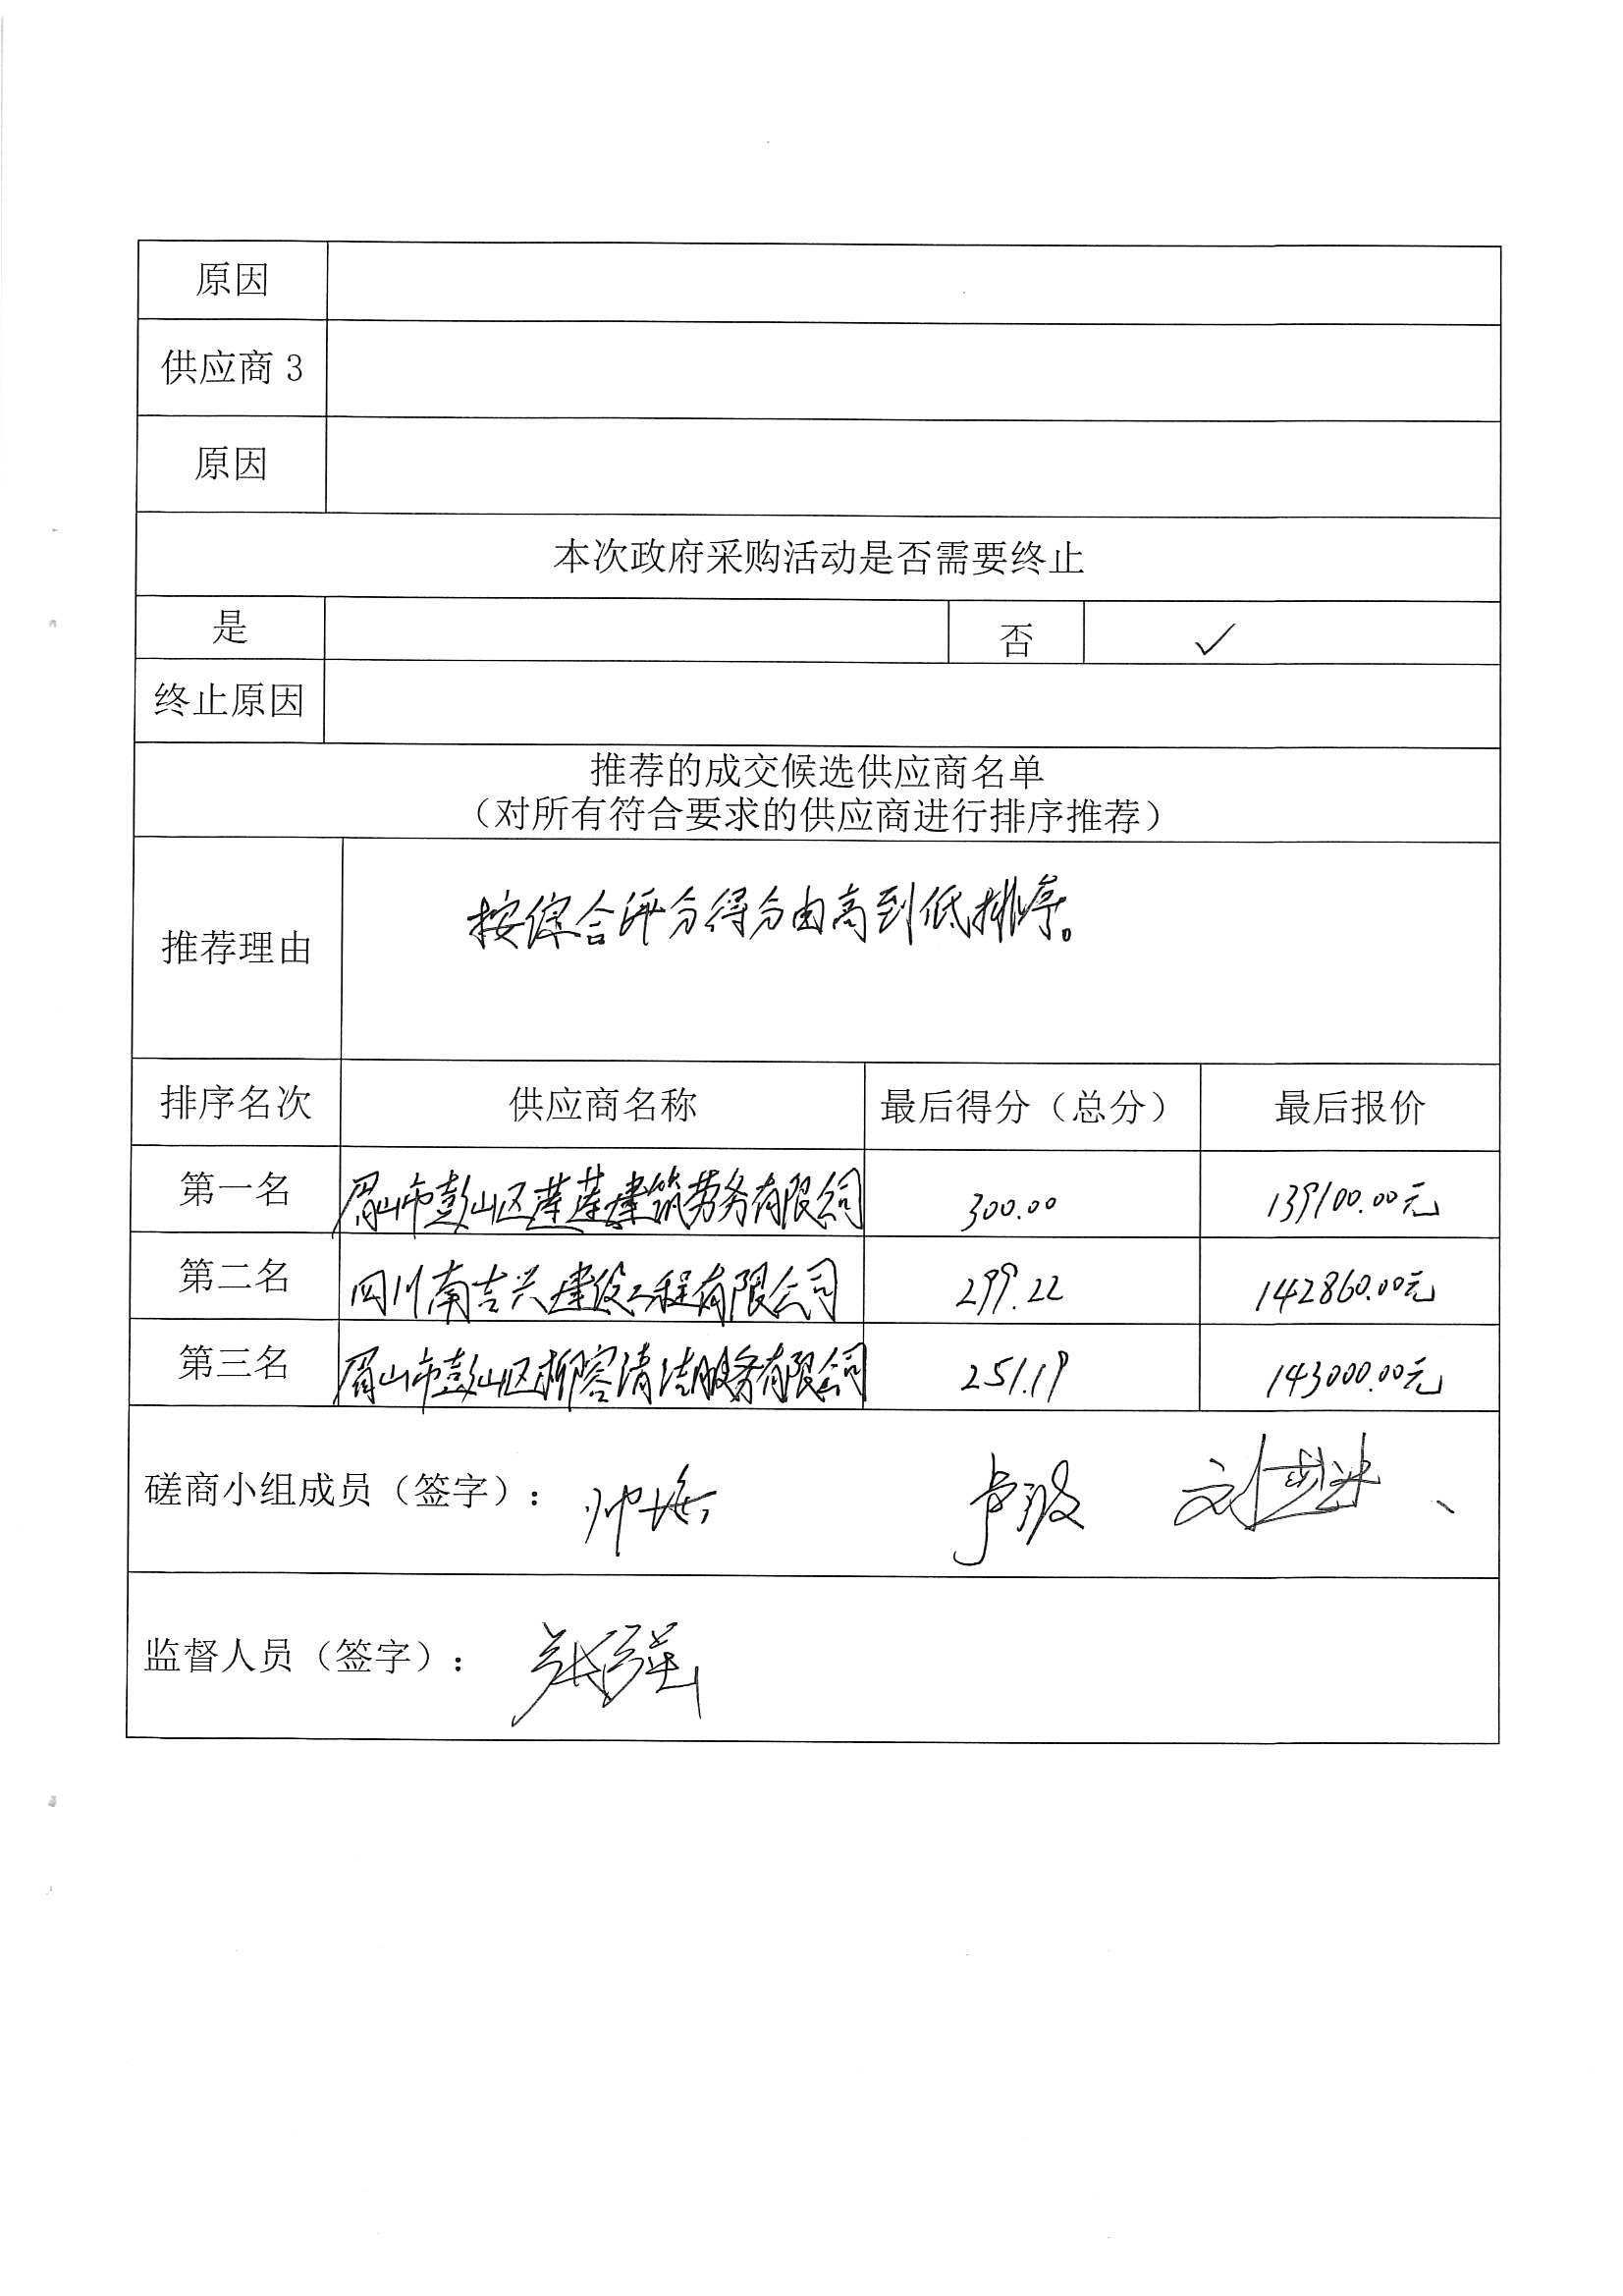 原因
供应商 3
原因
本次政府采购活动是否需要终止
是 否 ✓
终止原因
推荐的成交候选供应商名单
（对所有符合要求的供应商进行排序推荐）
推荐理由 按综合评分得分由高到低排序。
排序名次 供应商名称 最后得分（总分） 最后报价
第一名 眉山市彭山区莲莲建筑劳务有限公司 300.00 139100.00元
第二名 四川南吉兴建设工程有限公司 299.22 142860.00元
第三名 眉山市彭山区柳容清洁服务有限公司 251.19 143000.00元
磋商小组成员（签字）：
监督人员（签字）： 张强